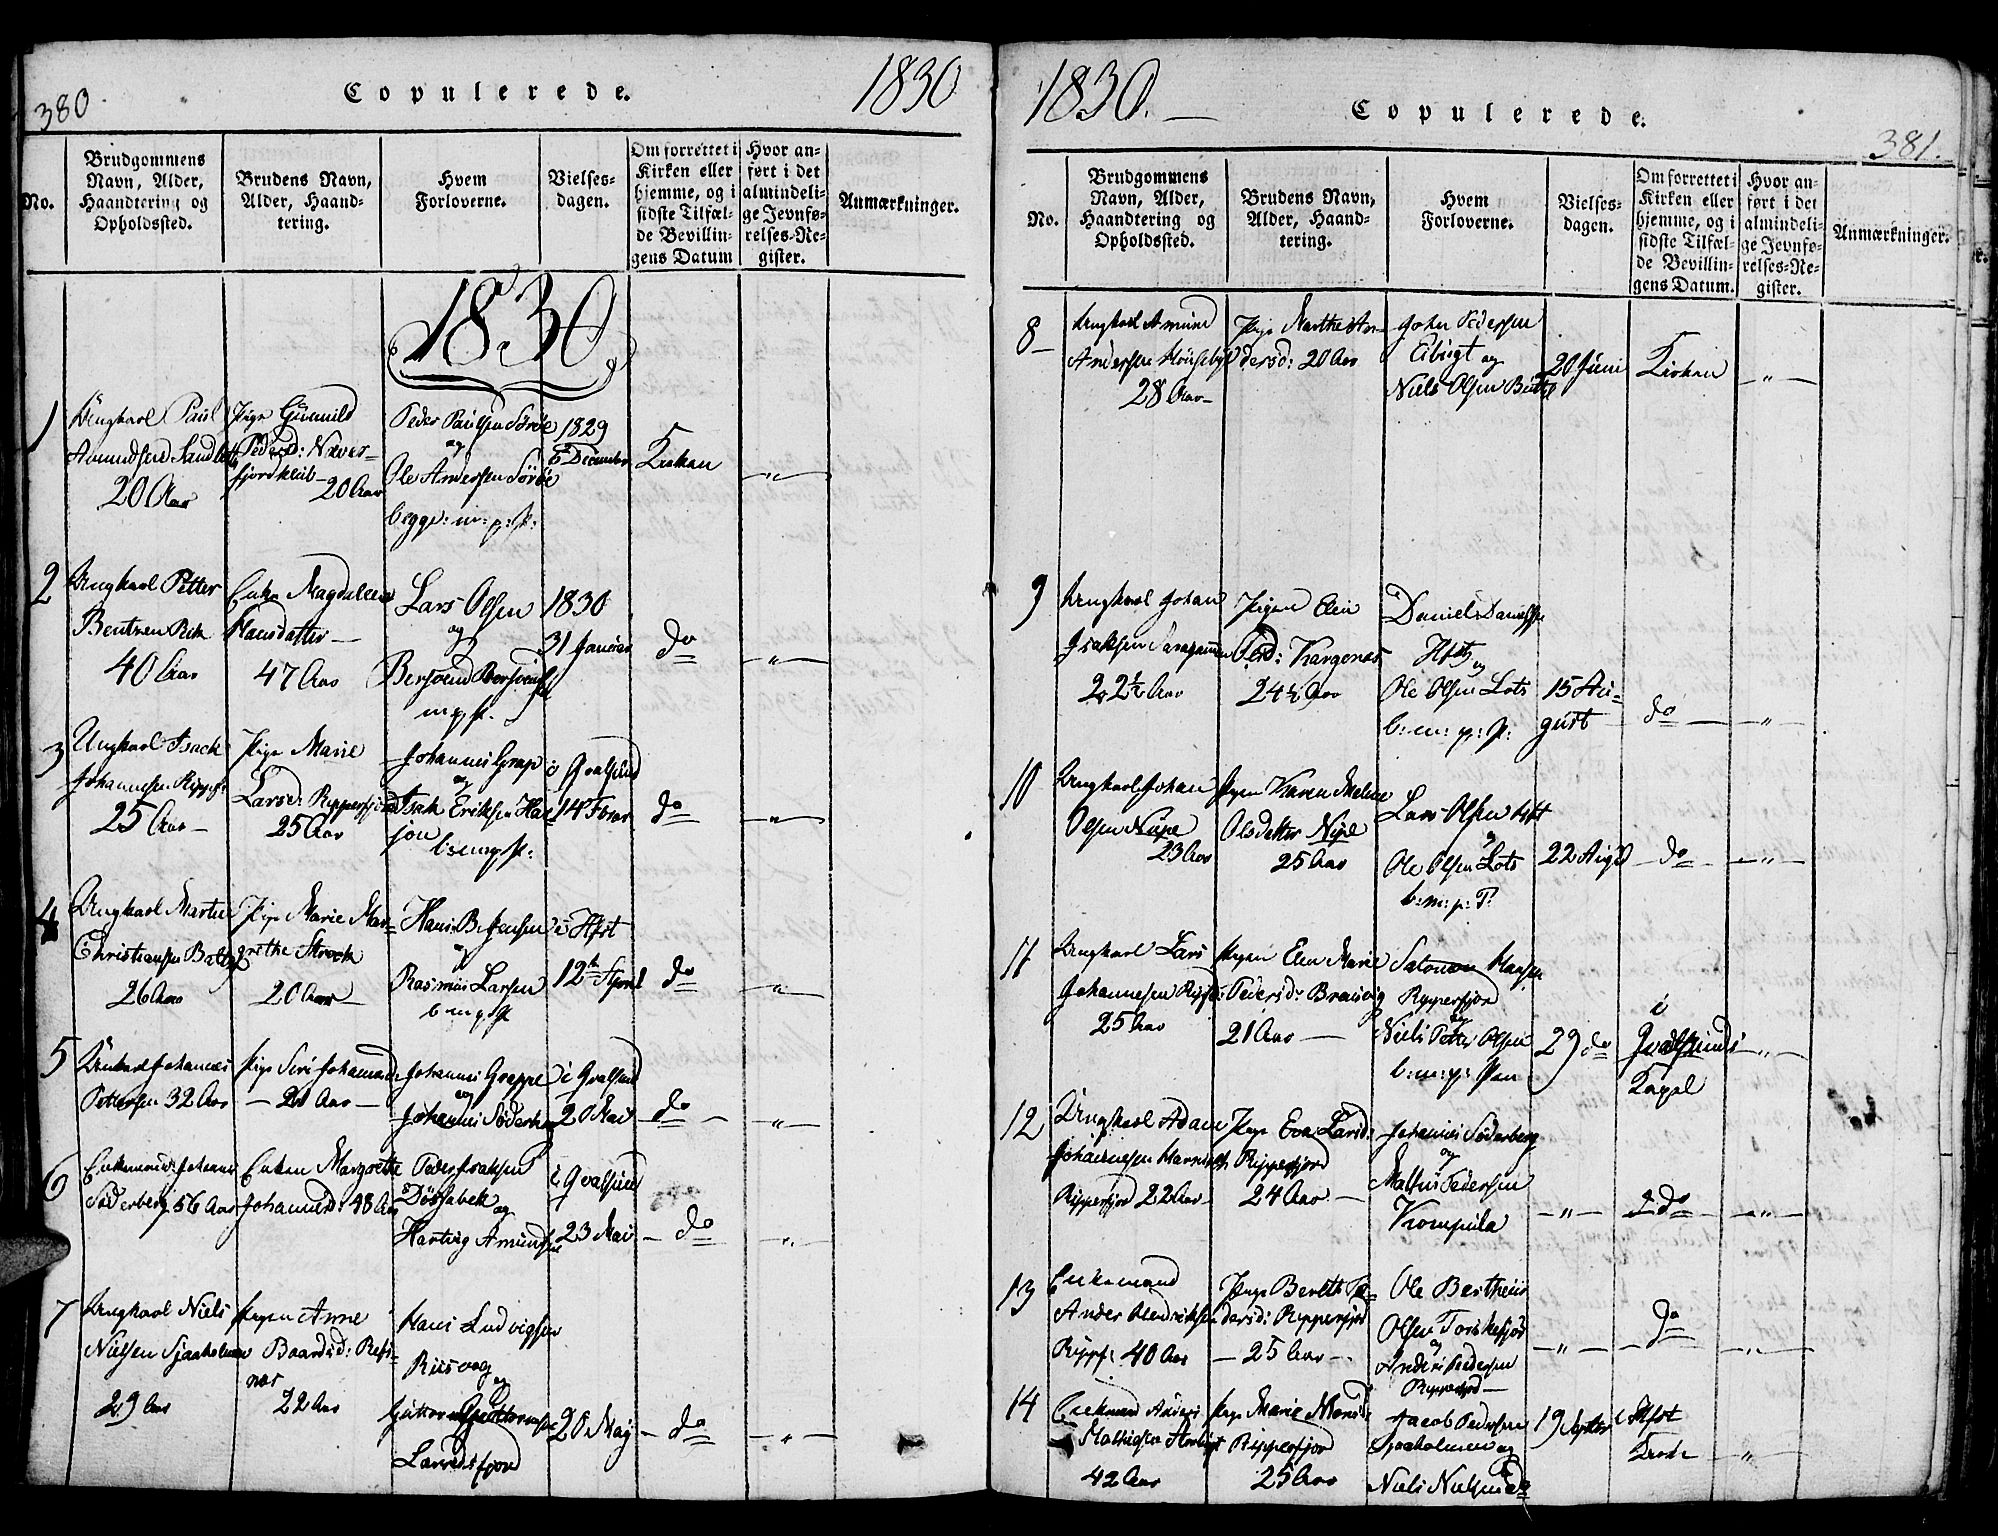 380.
Copulerede.
1830
No.
Brudgommens
Navn, Alder,
Haandtering og
Opholdssted.
Brudens Navn,
Alder, Haand-
tering.
Hvem
Forloverne.
Vielses-
dagen.
Om forrettet i
Kirken eller
hjemme, og i
sidste Tilfæl-
de Bevillin-
gens Datum
Hvor an-
ført i det
almindeli-
ge Jevnfø-
relses-Re-
gister.
Anmærkninger.
1830
1
Ungkarl Paul
Amundsen
20 Aar
Pige Gunnild
Pedersd: Næver-
fjordkleib
20 Aar
Peder Paulsen Sørøe
og
Ole Andersen Sørøe
begge: m: p: P:
1829
6 December
Kirken
— " —
2
Ungkarl Petter
Bentzen
40 Aar
Enke Magdalena
Hansdatter —
47 Aar
Lars Olsen
og
m p P.
1830
31 Januar
do
— " —
3
Ungkarl Isach
Johannesen Ripperf:
25 Aar —
Pige Marie
Larsd: Ripperfjord
25 Aar
Johannes Grap
og
Isak Eriksen
b: m p P:
i Qvalsund
14 Febr
do
— " —
4
Ungkarl Martin
Christiansen
26 Aar
Pige Marie Mar-
grethe
20 Aar
Hans B. Jensen
og
Rasmus Larsen
b m p P
i Hfst
12te April
do
— " —
5
Ungkarl Johannes
Pettersen 32 Aar
Pige Siri Johannesd:
— 20 Aar —
Johannes Grappe
og
Johannes Søderberg
i Qvalsund
20 Mai
— do —
— " —
6
Enkemand Johannes
Søderberg 56 Aar
Enken Margrethe
Johannesd: 48 Aar
Peder Isaksen
og
Hartvig Amundsen
i Qvalsund
23 Mai
— do
— " —
7
Ungkarl Niels
Nielsen Sjaaholmen
29 Aar
Pigen Anne
Baardsd: Refs-
nær
22 Aar
Hans Ludvigsen
Riisvog
og
20 May
— do —
— " —
1830. —
Copulerede.
381.
No.
Brudgommens
Navn, Alder,
Haandtering og
Opholdssted.
Brudens Navn,
Alder, Haand-
tering.
Hvem
Forloverne.
Vielses-
dagen.
Om forrettet i
Kirken eller
hjemme, og i
sidste Tilfæl-
de Bevillin-
gens Datum.
Hvor an-
ført i det
almindeli-
ge Jevnfø-
relses-Re-
gister.
Anmærkninger.
8 —
Ungkarl Amund
Andersen
28 Aar —
Pige Marthe An-
dersd: 20 Aar
Johan Pedersen
og
Niels Olsen
20 Juni
Kirken
— " —
9
Ungkarl Johan
Isaksen
22½ Aar
Pigen Elen
Pedersd: Kargenes
24½ Aar
Daniel Danielsen
Hfst og
Ole Olsen Lots
b: m: p: P:
15 Au-
gust
do —
— " —
10
Ungkarl Johan
Olsen
23 Aar
Pigen Karen Malene
Olsdatter
25 Aar
Lars Olsen Hfst
og
Ole Olsen Lots
b: m: p: P.
22 Augst
— do —
— " —
11
Ungkarl Lars
Johannesen Ripf:
25 Aar
Pigen Elen Marie
Pedersd:
21 Aar —
Salomon Hansen
Ripperfjord
og
Niels Petter Olsen
b: m: p: Pen
29 do
i
Qvalsunds
Capel
— " —
12
Ungkarl Adam
Johannesen
Ripperfjord 22 Aar —
Pige Eva Larsd:
Ripperfjord
24 Aar —
Johannes Søderberg
og
Mathis Pedersen
Kompula
— " —
do
— " —
13
Enkemand
Anders Hendriksen
Ripf: 40 Aar
Pige Bereth Pe-
dersd: Ripperfjord
— 25 Aar —
Ole Bertheus
Olsen Torskefjor
og
Anders Pedersen
Ripperfjord —
— " —
— do —
— " —
14
Enkemand Anders
Mathisen
42 Aar
Pige Marie Monsd:
Ripperfjord
25 Aar
Jacob Pedersen
Sjaaholmen og
Niels Nielsen do
19 Septbr
i Hfst
Kirke
— " —